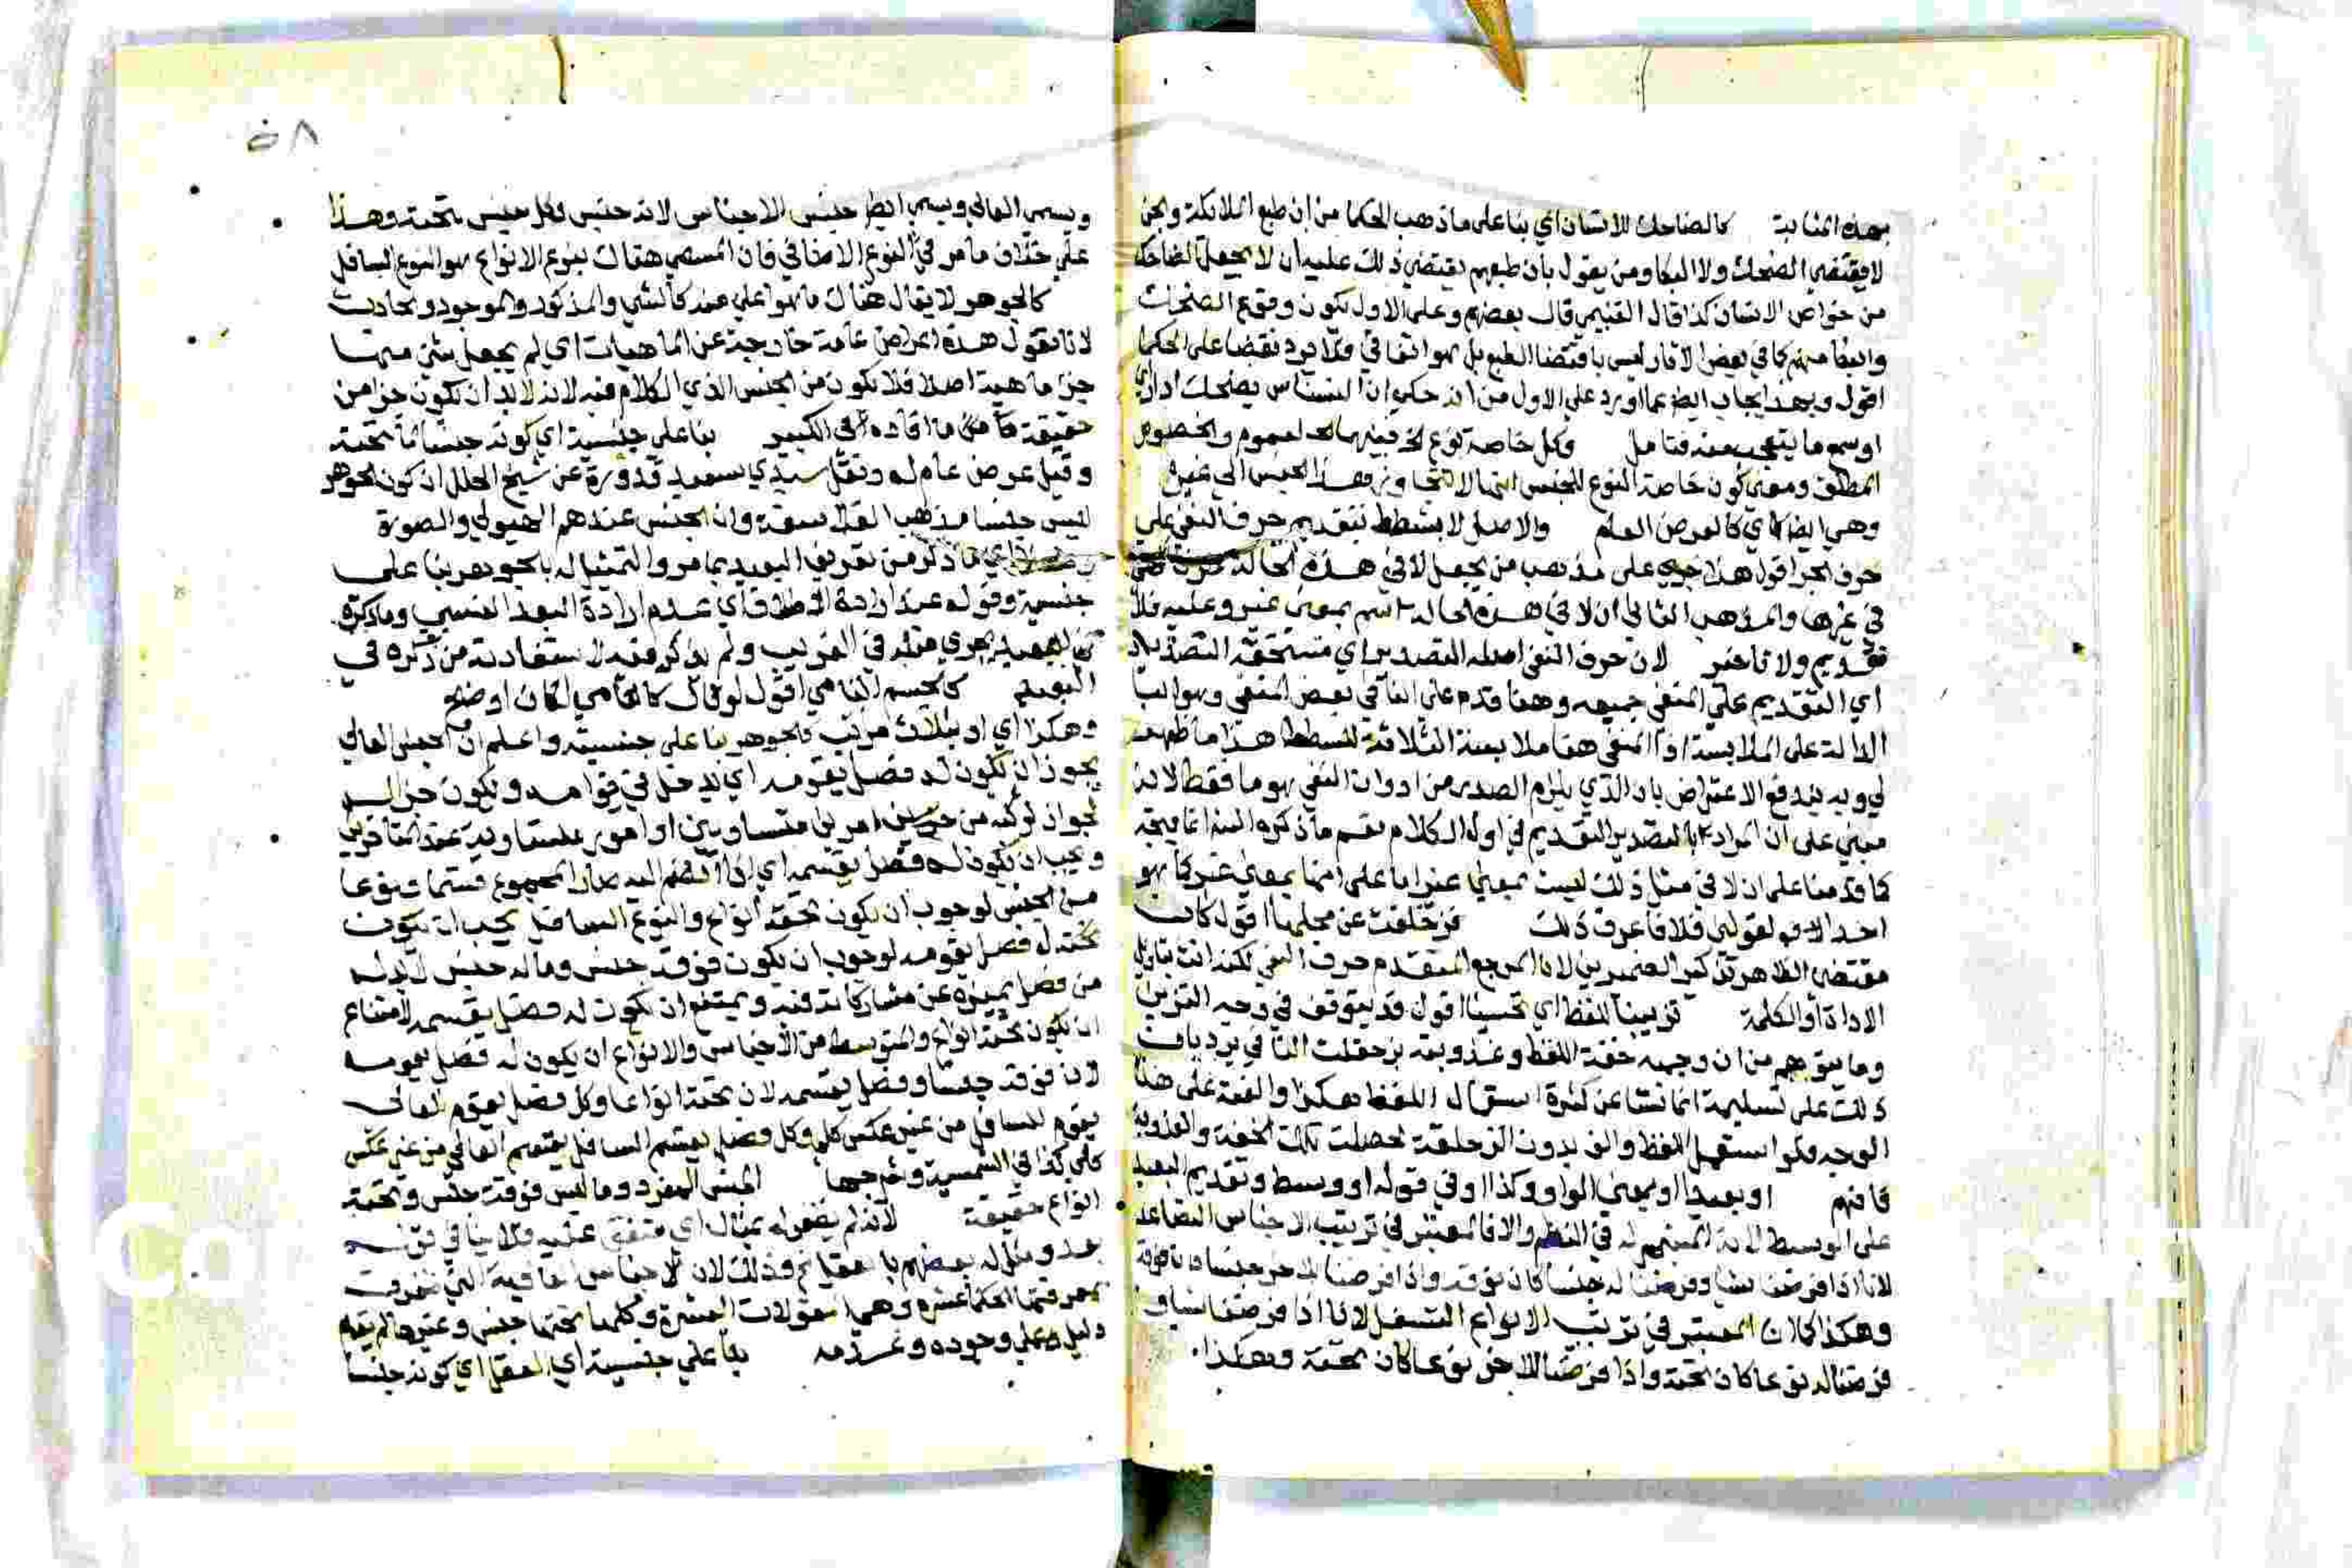 بهذه المثابة كالضاحك للانسان اي بنا على ما ذهب الحكما من ان طبع الملائكة والجن
لا يقتضي الضحك ولا البكا ومن يقول بان طبعهم يقتضي ذلك عليه ان لا يجعل الضاحك
من خواص الانسان كذا قال الغنيمي قال بعضهم وعلى الاول يكون وقوع الضحك
والبكا منهم كما في بعض الاثار ليس باقتضا الطبع بل هو اتفاقي فلا يرد نقضا على الحكما
اقول وبهذا يجاب ايضا عما اورد على الاول من انه حكي ان النسناس يضحك اذا راى
او سمع ما يتعجب منه فتامل وكل خاصة نوع الخ فبينهما العموم والخصوص
المطلق ومعنى كون خاصة النوع للجنس انها لا تتجاوز هذا الجنس الى غيره
وهي ايضا اي كالعرض العام والاصل لا بشطط بتقديم حرف النفي على
حرف الجر اقول هذا على مذهب من يجعل لا في هذه الحالة
في غيرها والمذهب الثاني ان لا في هذه الحالة اسم بمعنى غير وعليه فلا
تقديم ولا تاخير لان حرف النفي له التصدير اي مستحقة التصدير
اي التقديم على المنفي جميعه وهنا قدم على الباقي بعض المنفي وهو البا
الدالة على الملابسة اذ المنفي هنا ملابسة الثلاثة للشطط هذا ما ظهر
لي وبه يندفع الاعتراض بان الذي يلزم الصدر من ادوات النفي هو ما فقط لانه
مبني على ان المراد بالتصدير التقديم في اول الكلام نعم ما ذكره انما يتجه
كما قدمنا على ان لا في مثل ذلك ليست بمعنى غير اما على انها بمعنى غير كما هو
احد الاقوال فلا فاعرف ذلك فزحلقت عن محلها اقول كان
مقتضى الظاهر تذكير الضميرين لان المرجع المتقدم حرف النفي لكنه انث بتاويل
الاداة او الكلمة تزيينا للفظ اي تحسينا اقول قد يتوقف في وجه التزيين
وما يتوهم من ان وجهه خفة اللفظ وعذوبته بزحلقت النافي يرد بان
ذلك على تسليمه انما نشا عن كثرة استعمال اللفظ هكذا والفه على هذا
الوجه فلو استعمل اللفظ والف بدون الزحلقة لحصلت تلك الخفة والعذوبة
فافهم او بعيد او بمعنى الواو وكذا او في قوله او وسط وتقديم البعيد
على الوسط في النظم والا فالمعتبر في ترتيب الاجناس التصاعد
لانا اذا فرضنا شيا وفرضنا له جنسا كان فوقه واذا فرضنا لاخر جنسا كان فوقه
وهكذا كما ان المعتبر في ترتيب الانواع التسفل لانا اذا فرضنا شيا و
فرضنا له نوعا كان تحته واذا فرضنا للاخر نوعا كان تحته وهكذا
٥٨
ويسمى العالي ويسمى ايضا جنس الاجناس لانه جنس وكل جنس تحته وهذا
على خلاف ما مر في النوع الاضافي فان المسمى هناك بنوع الانواع هو النوع السافل
كالجوهر لا يقال هناك ما هو اعلى منه كالشي والمذكور والموجود والحادث
لانا نقول هذه اعراض عامة خارجة عن الماهيات اي لم يجعل شي منها
جز ماهية اصلا فلا تكون من الجنس الذي الكلام فيه لانه لا بد ان تكون جزا من
حقيقة ما افاده في الكبير بنا على جنسية اي كونه جنسا لما تحته
وقيل عرض عام له ونقل سيدي سعيد قدورة عن شيخ الجلال ان كون الجوهر
ليس جنسا مذهب الفلاسفة وان الجنس عندهم الهيولي والصورة
اي ما ذكر من تعريف البعيد بما مر والتمثيل له بالجوهر بنا على
جنسية وقوله عند ارادة الاطلاق اي عدم ارادة البعد النسبي وما ذكره
في البعيد يجري مثله في القريب ولم يذكره فيه لاستفادته من ذكره في
البعيد كالجسم النامي اقول لو قال كالنامي لكان اوضح
وهكذا اي او بثلاث مراتب فالجوهر بنا على جنسيته واعلم ان الجنس العالي
يجوز ان يكون له فصل يقومه اي يدخل في قوامه ويكون جزا له
لجواز تركبه من امرين متساويين او امور متساوية عند المتاخرين
ويجب ان يكون له فصل يقسمه اي اذا انضم اليه صار المجموع قسما ونوعا
من الجنس لوجوب ان يكون تحته انواع والنوع السافل يجب ان يكون
له فصل يقومه لوجوب ان يكون فوقه جنس وما له جنس لا بد له
من فصل يميزه عن مشاركاته فيه ويمتنع ان يكون له فصل يقسمه لامتناع
ان يكون تحته انواع والمتوسط من الاجناس والانواع ان يكون له فصل يقومه
لان فوقه جنسا وفصل يقسمه لان تحته انواعا وكل فصل يقوم العالي
يقوم السافل من غير عكس كلي وكل فصل يقسم السافل يقسم العالي من غير عكس
كلي كذا في الشمسية وشرحها الجنس المفرد وما ليس فوقه جنس وتحته
انواع حقيقة لانه لم يظفر له بمثال اي متفق عليه فلا ينافي قوله
بعد ومثل له بعضهم بالعقل الخ وذلك لان الاجناس العالية التي
بمعرفتها الحكما عشرة وهي المقولات العشرة وكلها تحتها جنس وغيرها لم يقم
دليل على وجوده وعدمه بنا على جنسية اي العقل اي كونه جنسا